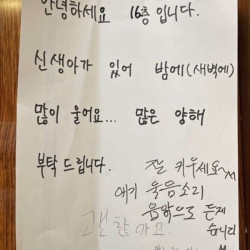 안녕하세요 16층 입니다.
신생아가 있어 밤에(새벽에)
많이 울어요... 많은 양해
부탁 드립니다.
잘 키우세요~
애기 울음소리
음악으로 듣겠
습니다
괜찮아요